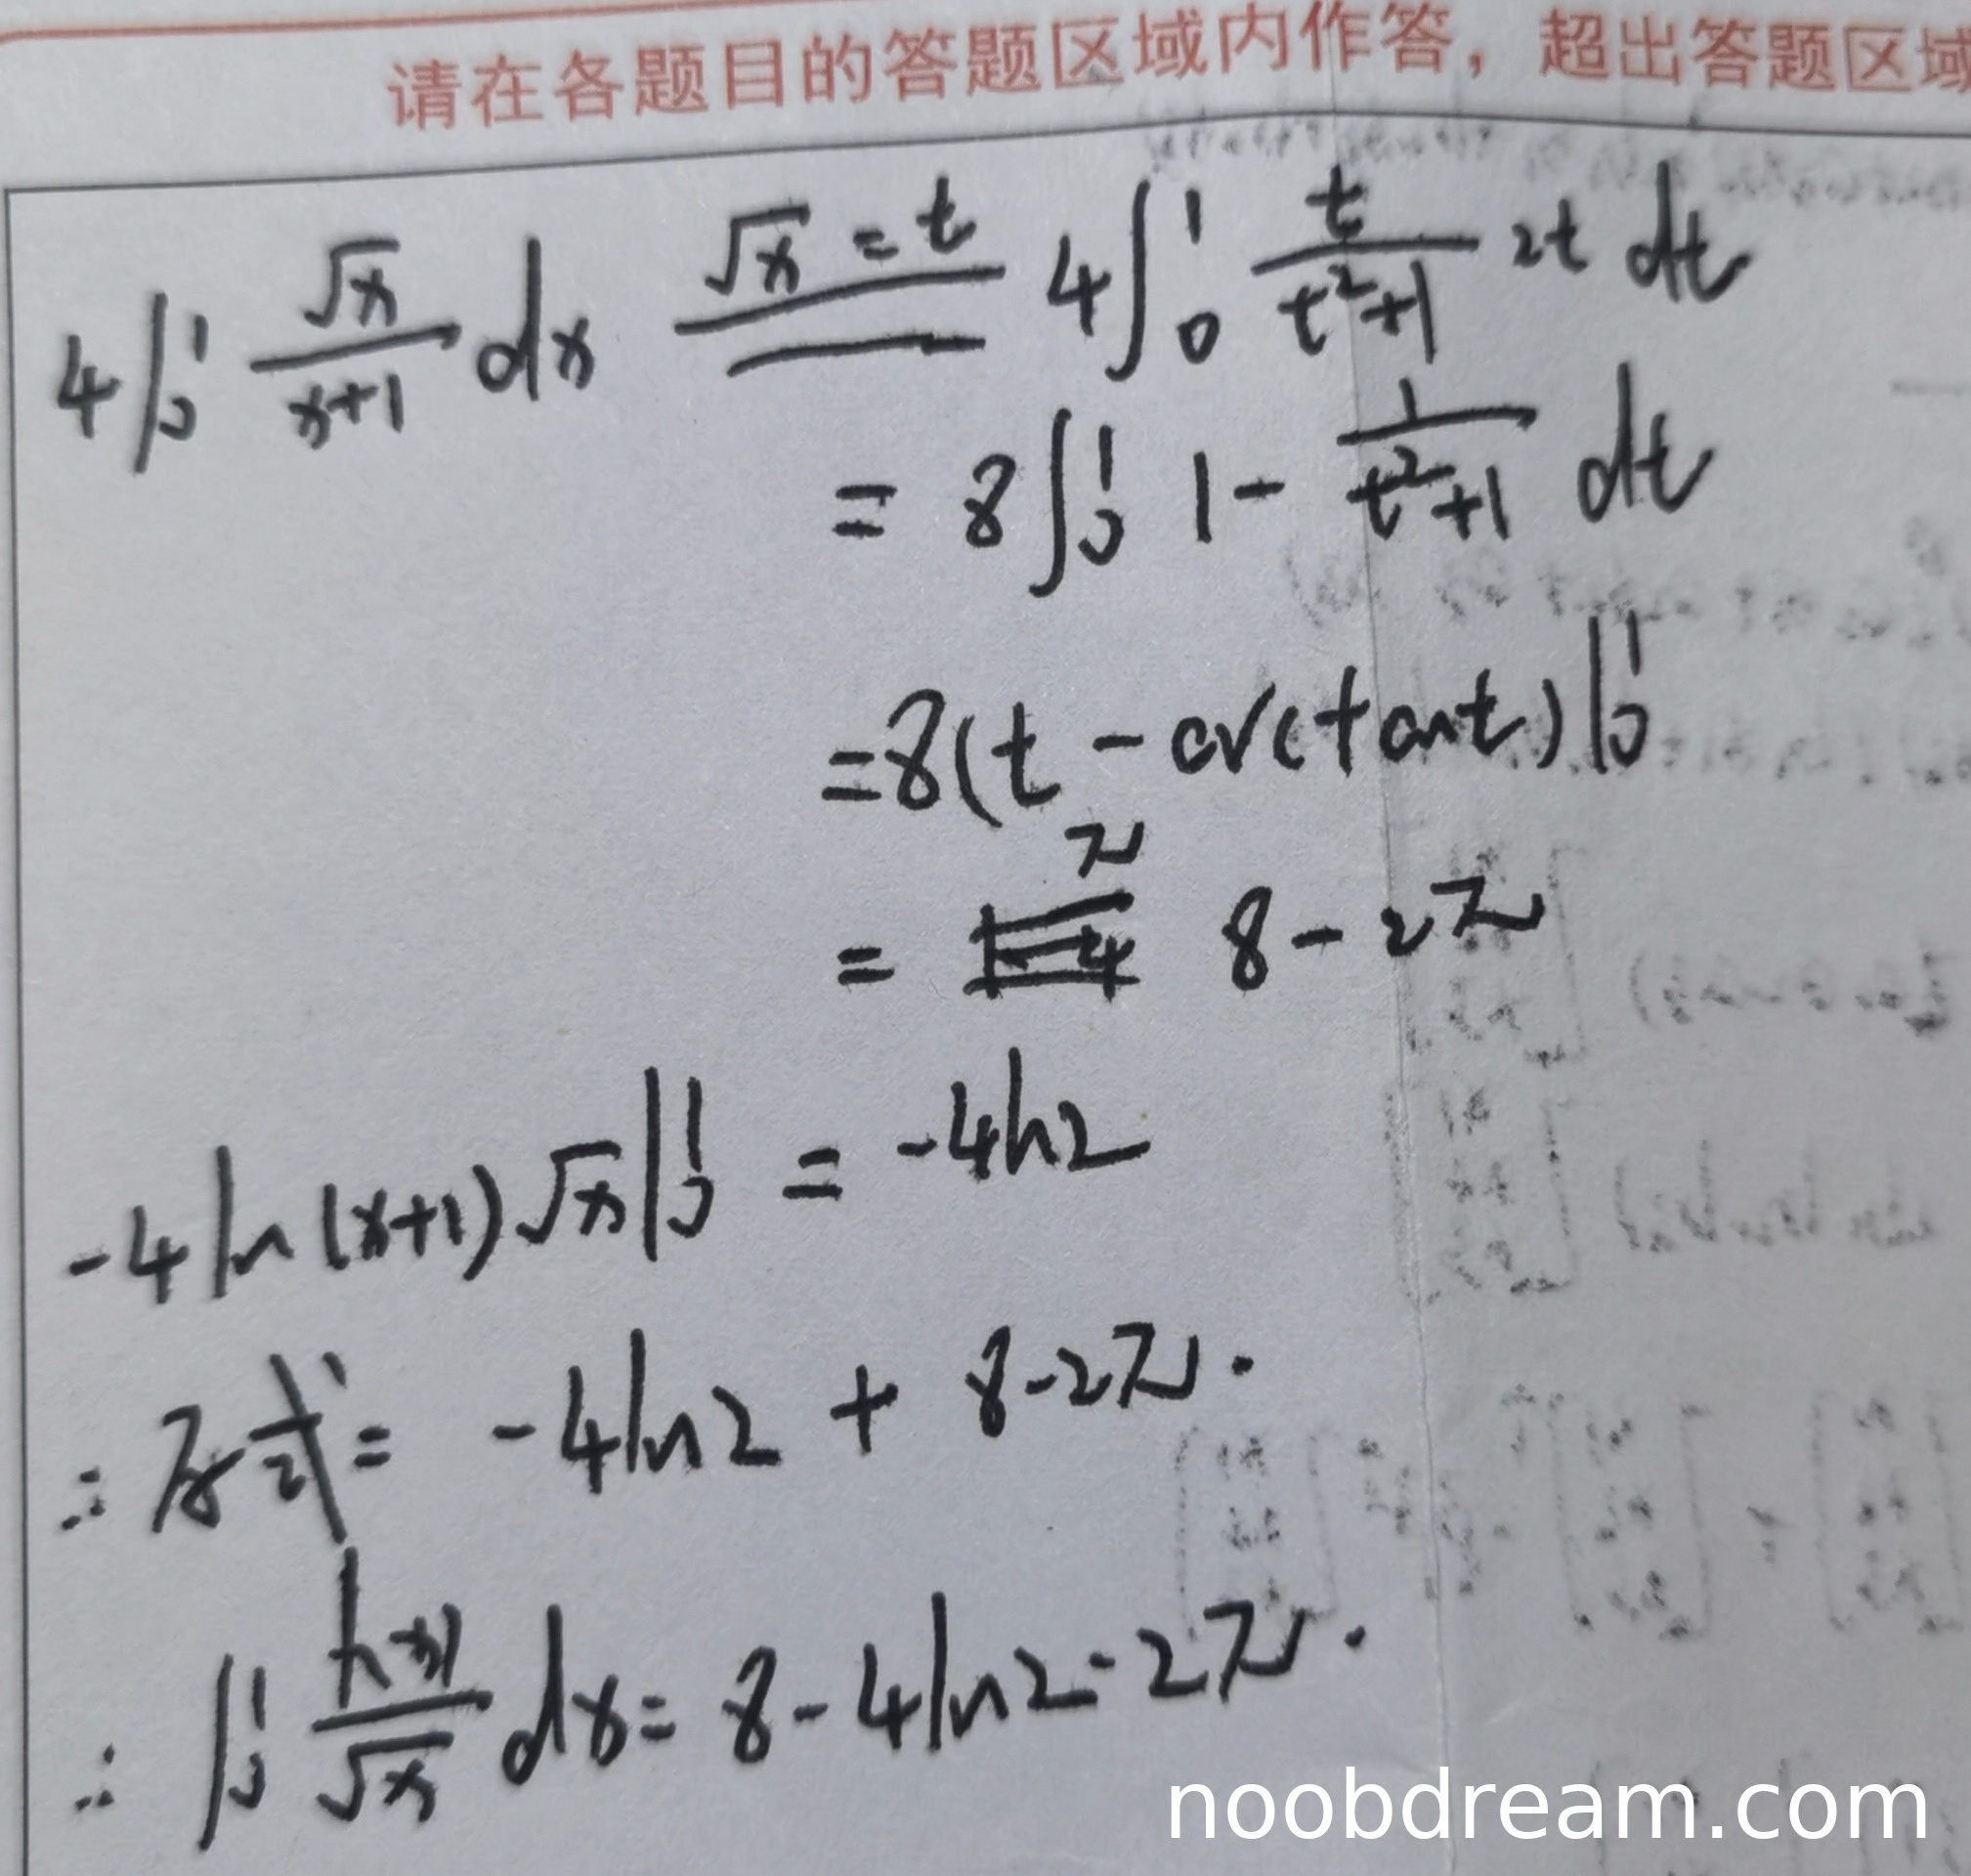 请在各题目的答题区域内作答，超出答题区域
4∫₀¹ √x/(x+1) dx √x = t 4∫₀¹ t/(t²+1) 2t dt
= 8∫₀¹ 1 - 1/(t²+1) dt
=8(t - arctant)|₀¹
= 8 - 2π
-4ln(x+1)√x|₀¹ = -4ln2
∴ 原式= -4ln2 + 8-2π.
∴ ∫₀¹ f(x)/√x dx = 8-4ln2-2π.
noobdream.com